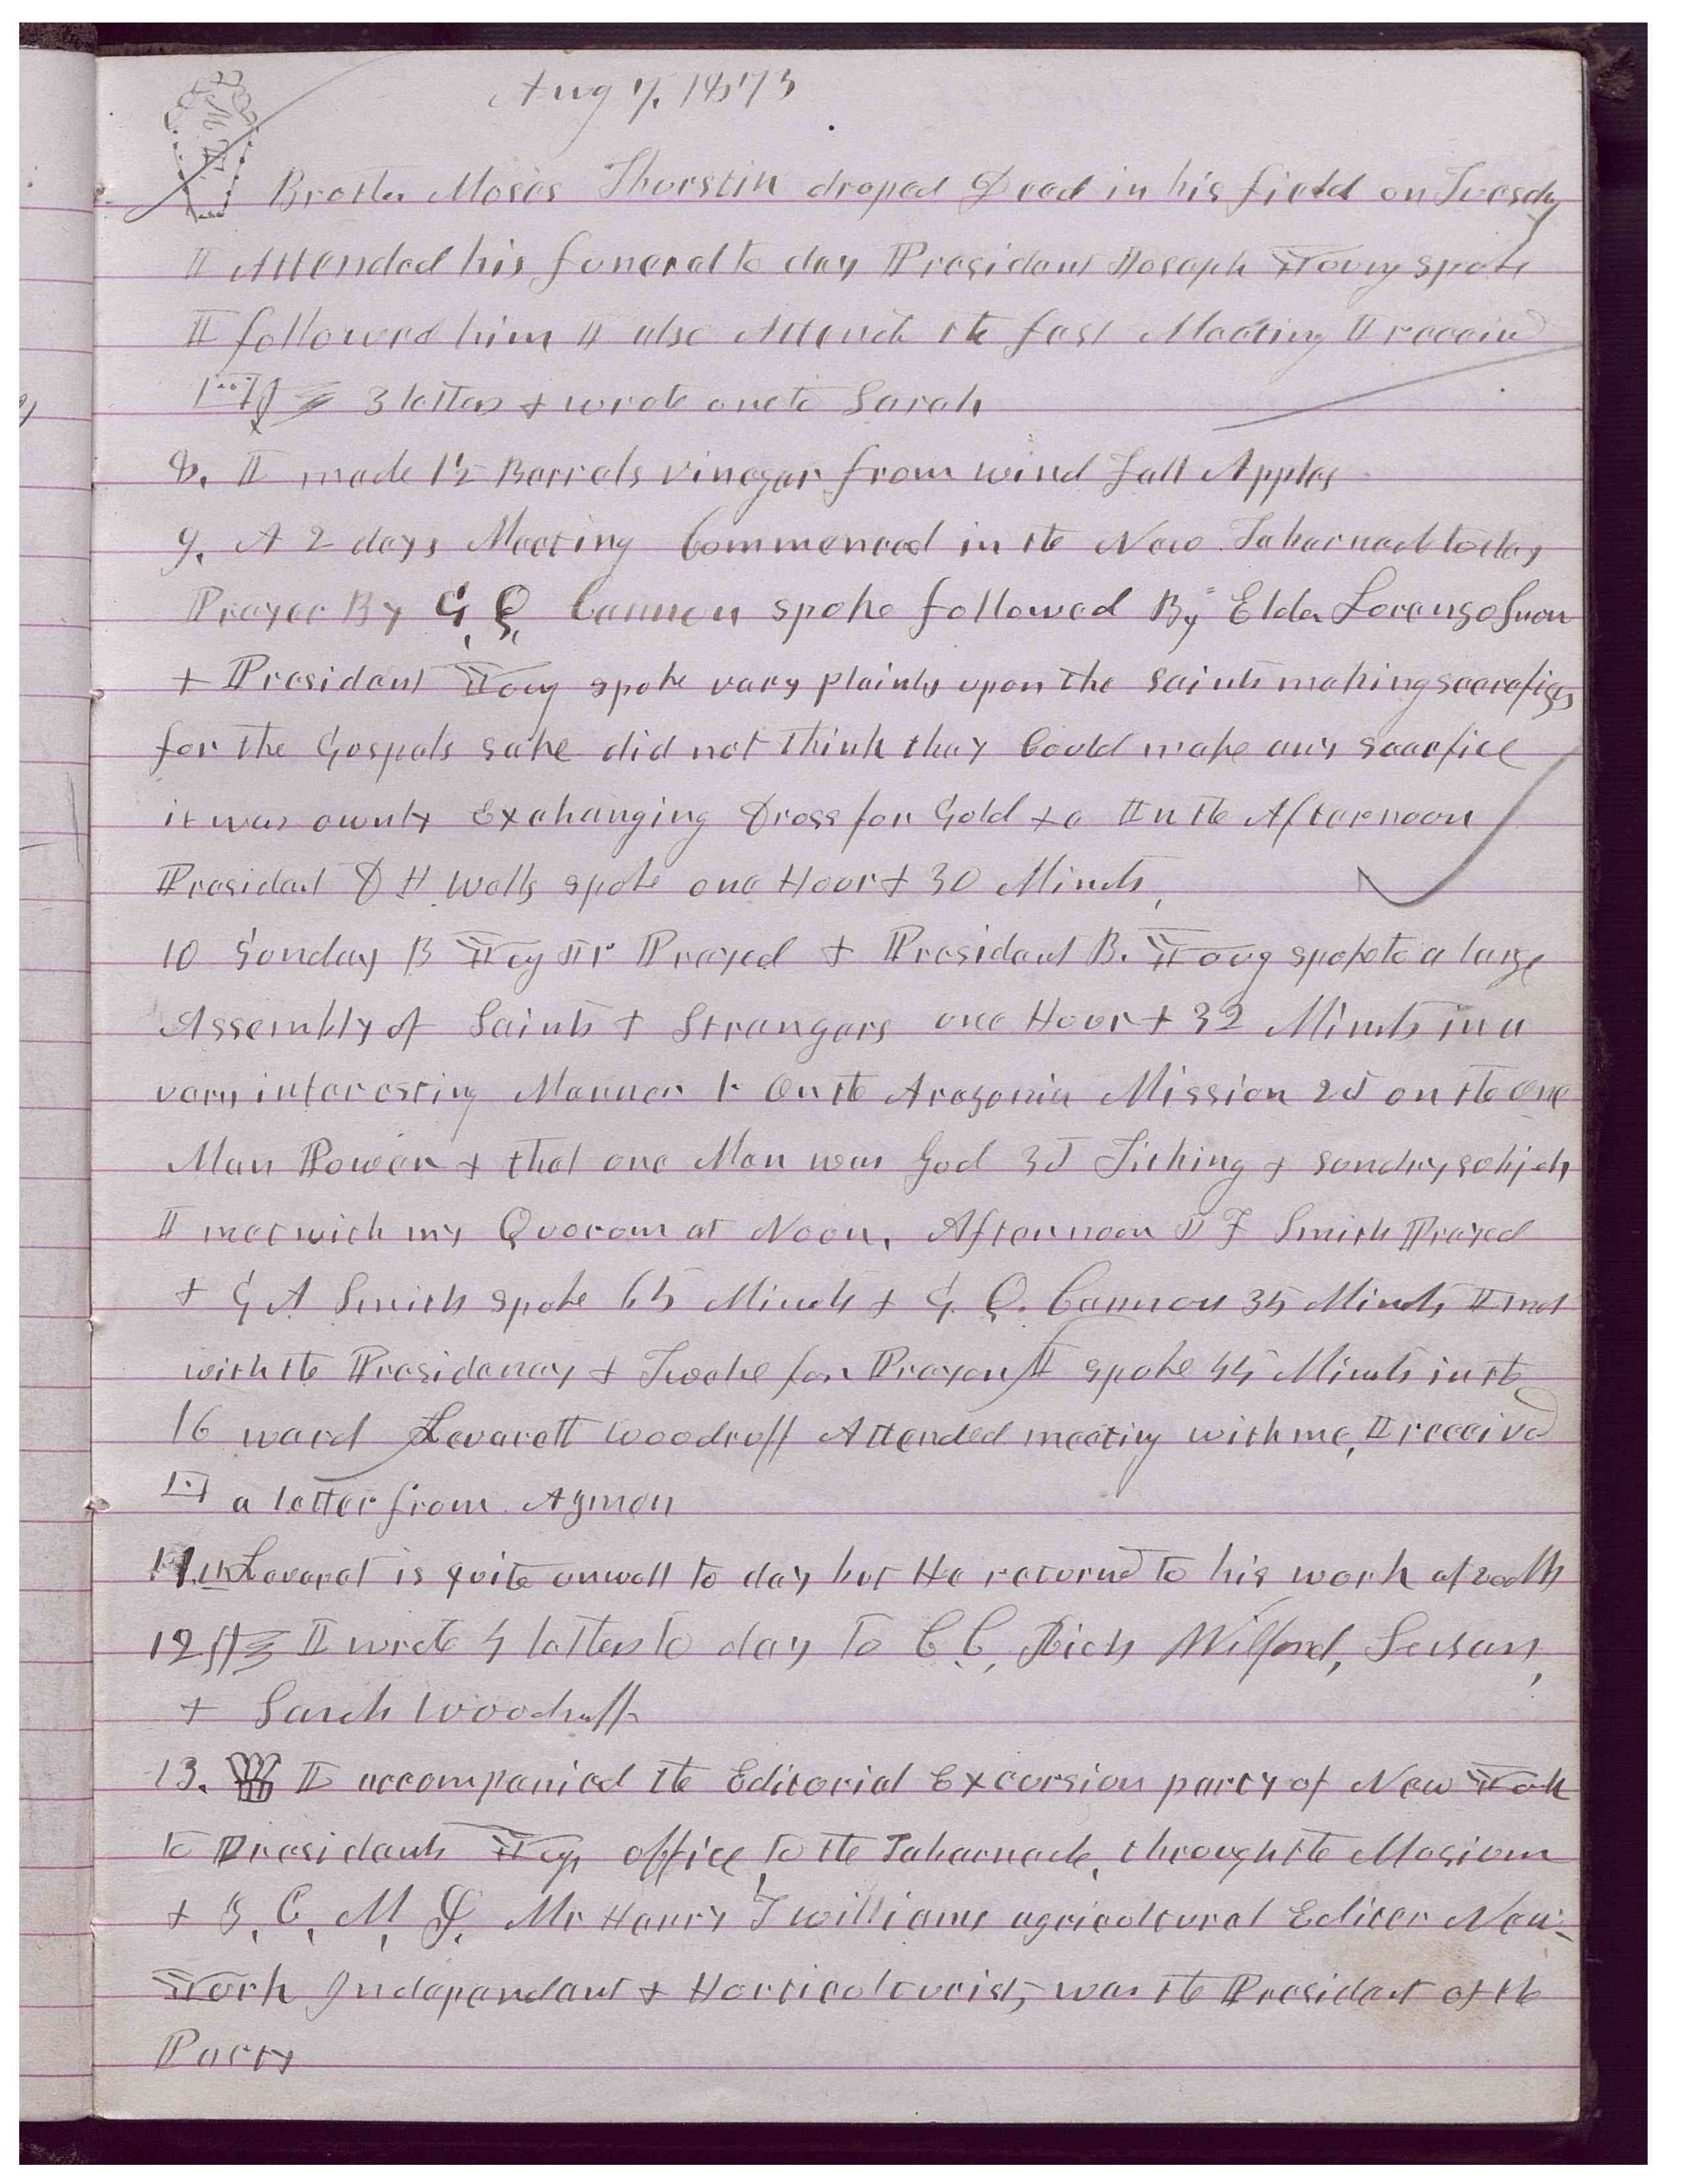 Aug 7, 1873
Brother Moses Thurstin droped Dead in his field on Tuesdy
I Attended his funeral to day President Joseph Young spoke
I followed him I also Attend the fast Meeting I receivd
3 letters & wrote one to Sarah
8. I made 1½ Barrels vinegar from wind fall Apples
9. A 2 days Meeting Commenced in the New Tabernacle to day
Prayer By G Q Cannon spoke followed By Elder Lorenzo Snow
+ President Young spoke vary plainly upon the Saints making sacrafizes
for the Gospels sake did not think they Could make any sacrfice
it was ownly Exchanging Dross for Gold &c In the Afternoon
President D H Wells spoke one Hour + 30 Minuts,
10 Sunday B Young Jr Prayed + President B. Young spoke to a large
Assembly of Saints + Strangers one Hour + 32 Minuts in a
vary interesting Manner 1st On the Arazonia Mission 2d on the One
Man Power + that one Man was God 3d Tithing + sundry subjects
I met with my Quorum at Noon, Afternoon J F Smith Prayed
+ G A Smith spoke 65 Minuts + G. Q. Cannon 35 Minuts I met
with the Presidency + Twelve for Prayer I spoke 45 Minuts in the
16 ward Levarett Woodruff Attended meeting with me, I receivd
a letter from Azmon
11. Levaret is quite unwell to day but He returnd to his work at
12 I wrote 4 letters to day to C. C. Rich Wilford, Susan,
+ Sarah Woodruff
13. I accompanied the Editorial Excursion party of New York
to Presidents Youngs office, to the Tabernacle, through the Museum
+ Z. C. M. I. Mr Henry T Williams agricultural Editor New-
York Independant + Horticulturist, was the President of the
Party